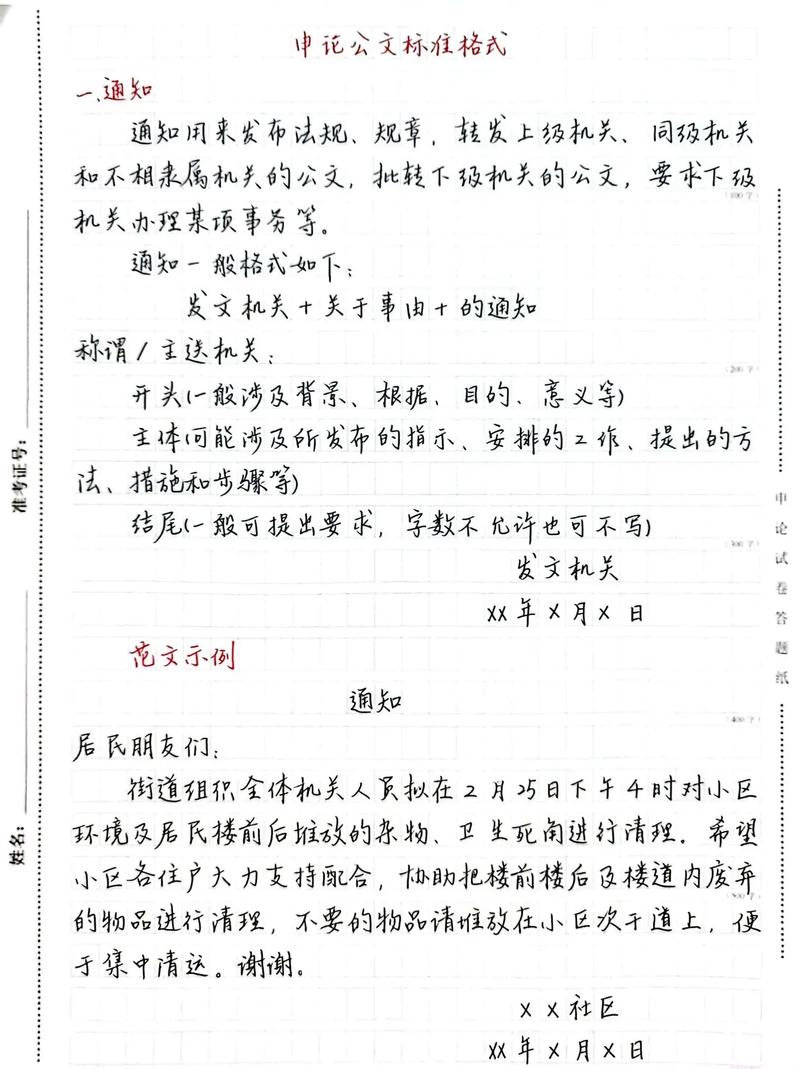 申论公文标准格式
一、通知
通知用来发布法规、规章，转发上级机关、同级机关
和不相隶属机关的公文，批转下级机关的公文，要求下级
机关办理某项事务等。
(100字)
通知一般格式如下：
发文机关＋关于事由＋的通知
称谓/主送机关：
(200字)
开头(一般涉及背景、根据、目的、意义等)
主体(可能涉及所发布的指示、安排的工作、提出的方
法、措施和步骤等)
结尾(一般可提出要求，字数不允许也可不写)
(300字)
发文机关
XX年X月X日
范文示例
通知
(400字)
居民朋友们：
街道组织全体机关人员拟在2月25日下午4时对小区
环境及居民楼前后堆放的杂物、卫生死角进行清理。希望
小区各住户大力支持配合，协助把楼前楼后及楼道内废弃
(500字)
的物品进行清理，不要的物品请堆放在小区次干道上，便
于集中清运。谢谢。
XX社区
XX年X月X日
准考证号：
姓名：
申论试卷答题纸